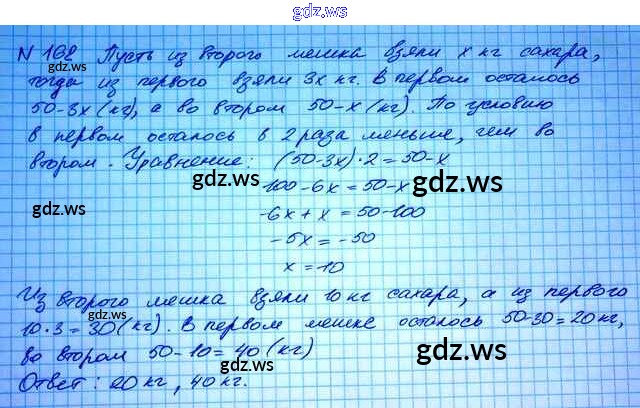 gdz.ws
N 168 Пусть из второго мешка взяли x кг сахара,
тогда из первого взяли 3x кг. В первом осталось
50-3x (кг), а во втором 50-x (кг). По условию
в первом осталось в 2 раза меньше, чем во
втором. Уравнение: (50-3x)·2=50-x
gdz.ws
100-6x=50-x
gdz.ws
gdz.ws
-6x+x=50-100
-5x=-50
x=10
gdz.ws
Из второго мешка взяли 10 кг сахара, а из первого
10·3=30(кг). В первом мешке осталось 50-30=20кг,
во втором 50-10=40(кг)
gdz.ws
gdz.ws
Ответ: 20кг, 40кг.